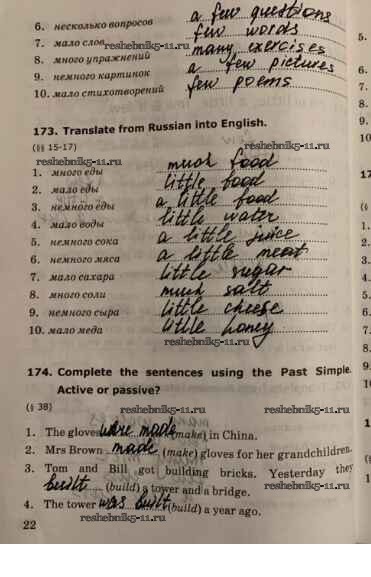 6. несколько вопросов a few questions
7. мало слов few words
reshebnik5-11.ru
8. много упражнений many exercises
9. немного картинок a few pictures
10. мало стихотворений few poems
reshebnik5-11.ru
173. Translate from Russian into English.
(§§ 15-17)
reshebnik5-11.ru
1. много еды much food
2. мало еды little food
3. немного еды a little food
4. мало воды little water
5. немного сока a little juice
6. немного мяса a little meat
7. мало сахара little sugar
8. много соли much salt
9. немного сыра little cheese
10. мало меда little honey
reshebnik5-11.ru
174. Complete the sentences using the Past Simple.
Active or passive?
(§ 38)
reshebnik5-11.ru reshebnik5-11.ru
1. The gloves were made (make) in China.
2. Mrs Brown made (make) gloves for her grandchildren.
3. Tom and Bill got building bricks. Yesterday they
built (build) a tower and a bridge.
reshebnik5-11.ru
4. The tower was built (build) a year ago.
reshebnik5-11.ru
22
5.
6.
7.
8.
9.
10
17
(§
1.
2.
3.
4.
5.
6.